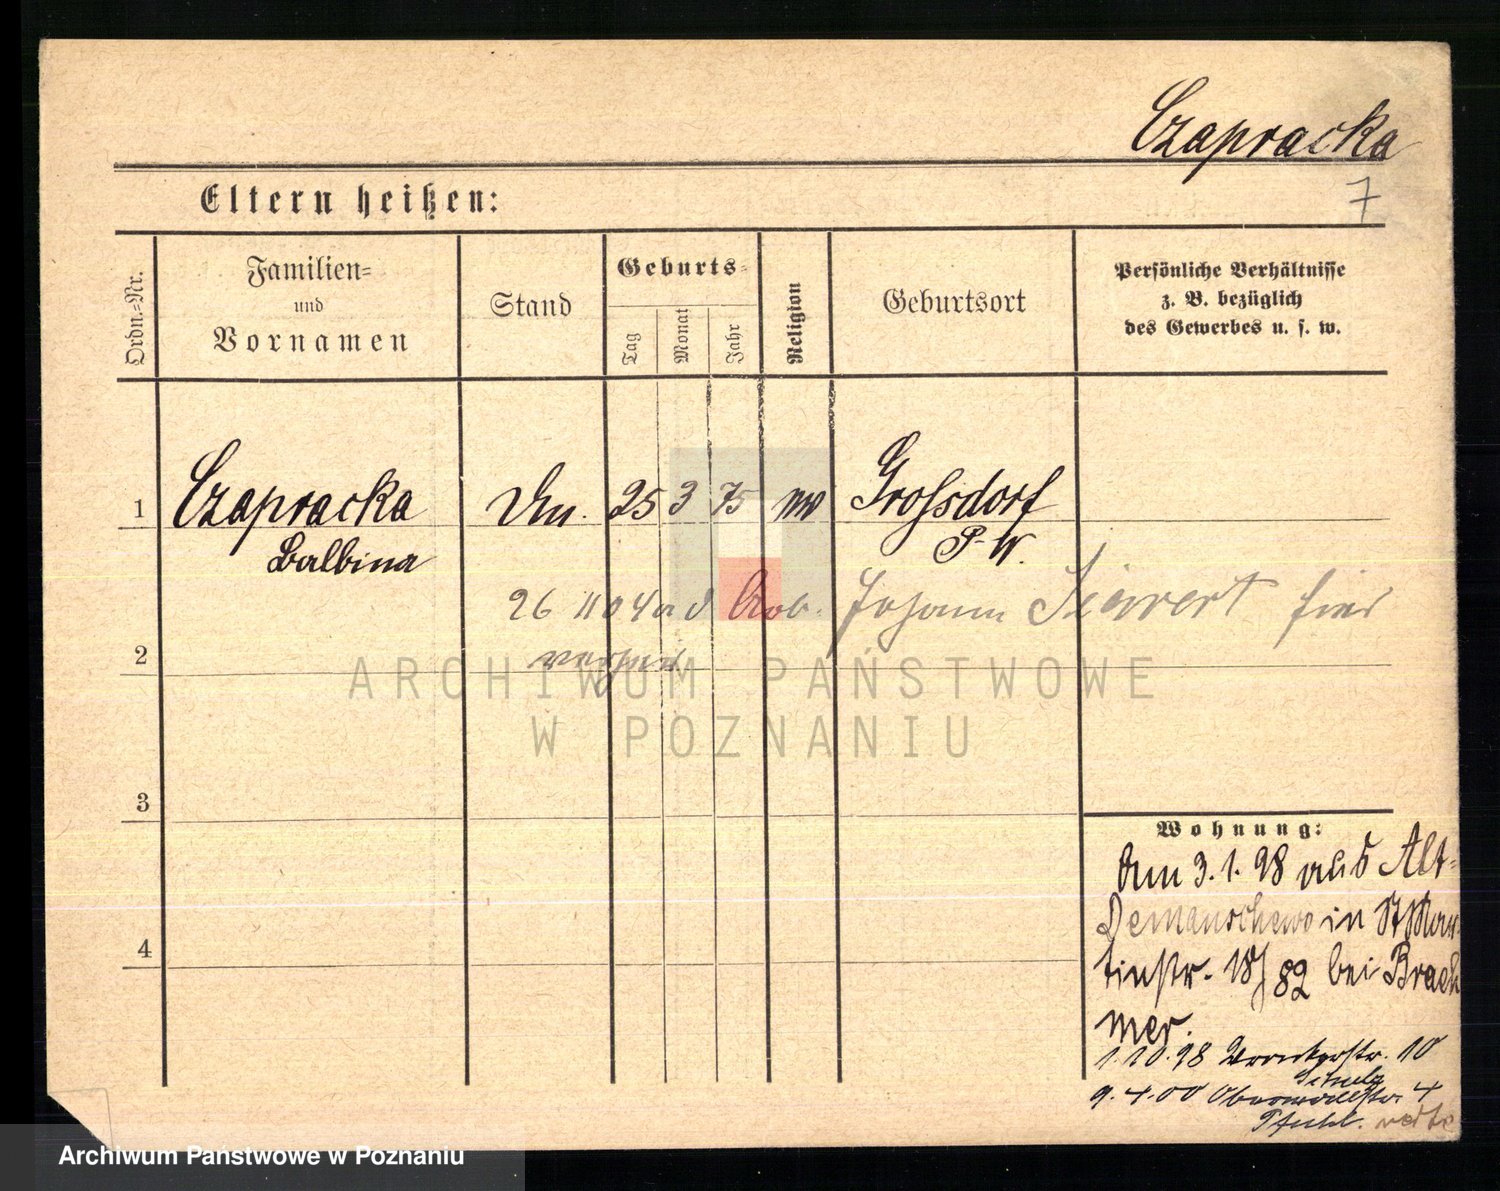 Czapracka
7
Eltern heißen:
Ordn.=Nr.
Familien=
und
Vornamen
Stand
Geburts=
Tag
Monat
Jahr
Religion
Geburtsort
Persönliche Verhältnisse
z. B. bezüglich
des Gewerbes u. s. w.
1
Czapracka
Balbina
25
3
75
Grossdorf
P. W.
26 11 04 Johann Siewert hier
2
ARCHIWUM PAŃSTWOWE
W POZNANIU
3
4
Wohnung:
Am 3.1.98 aus Alt=
Demanschewo in St Mar=
tinstr. 82 bei Brach
mer.
1.10.98 Wronkerstr. 10
Schulz
9.4.00 Oberwallstr. 4
Pfuhl. verte
Archiwum Państwowe w Poznaniu